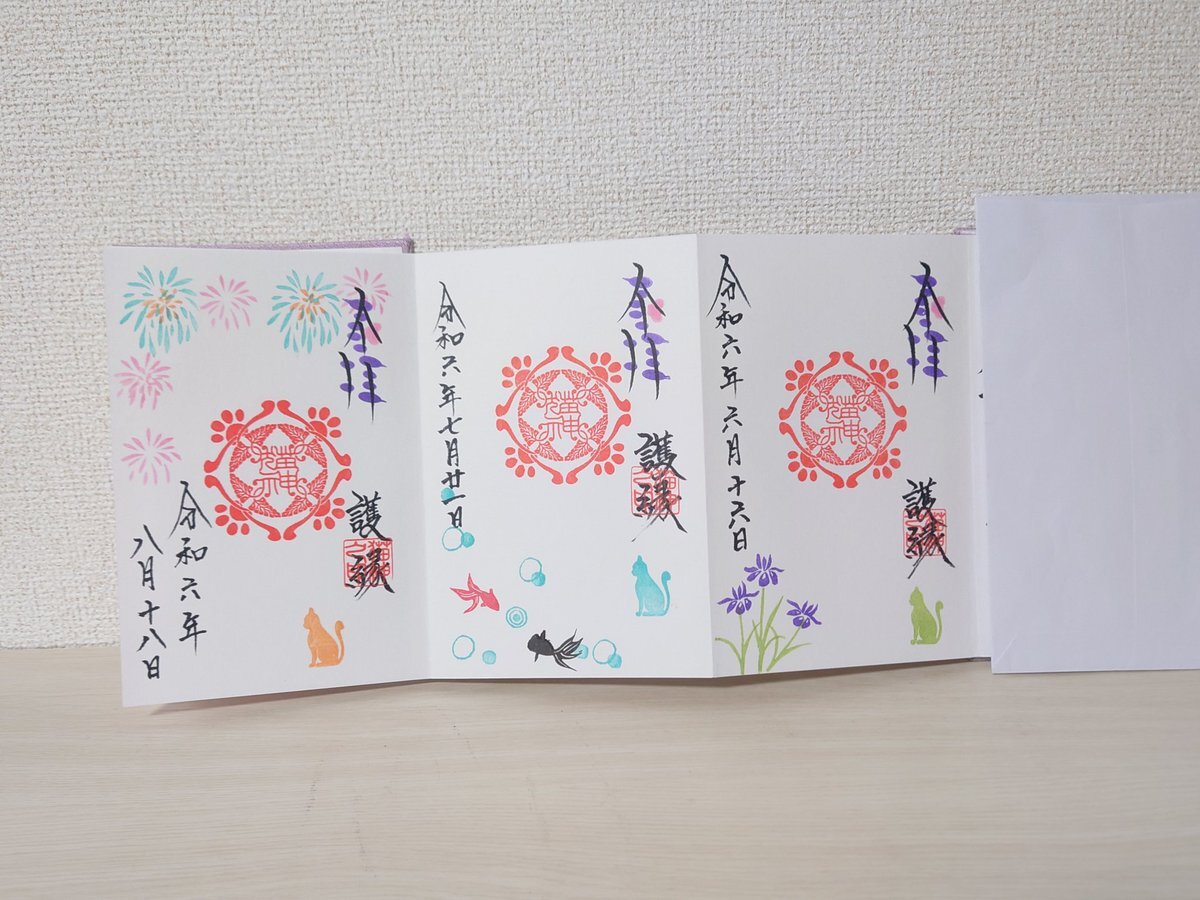 奉拝
護縁
猫神
令和六年六月十六日
奉拝
護縁
猫神
令和六年七月廿一日
奉拝
護縁
猫神
令和六年
八月十八日